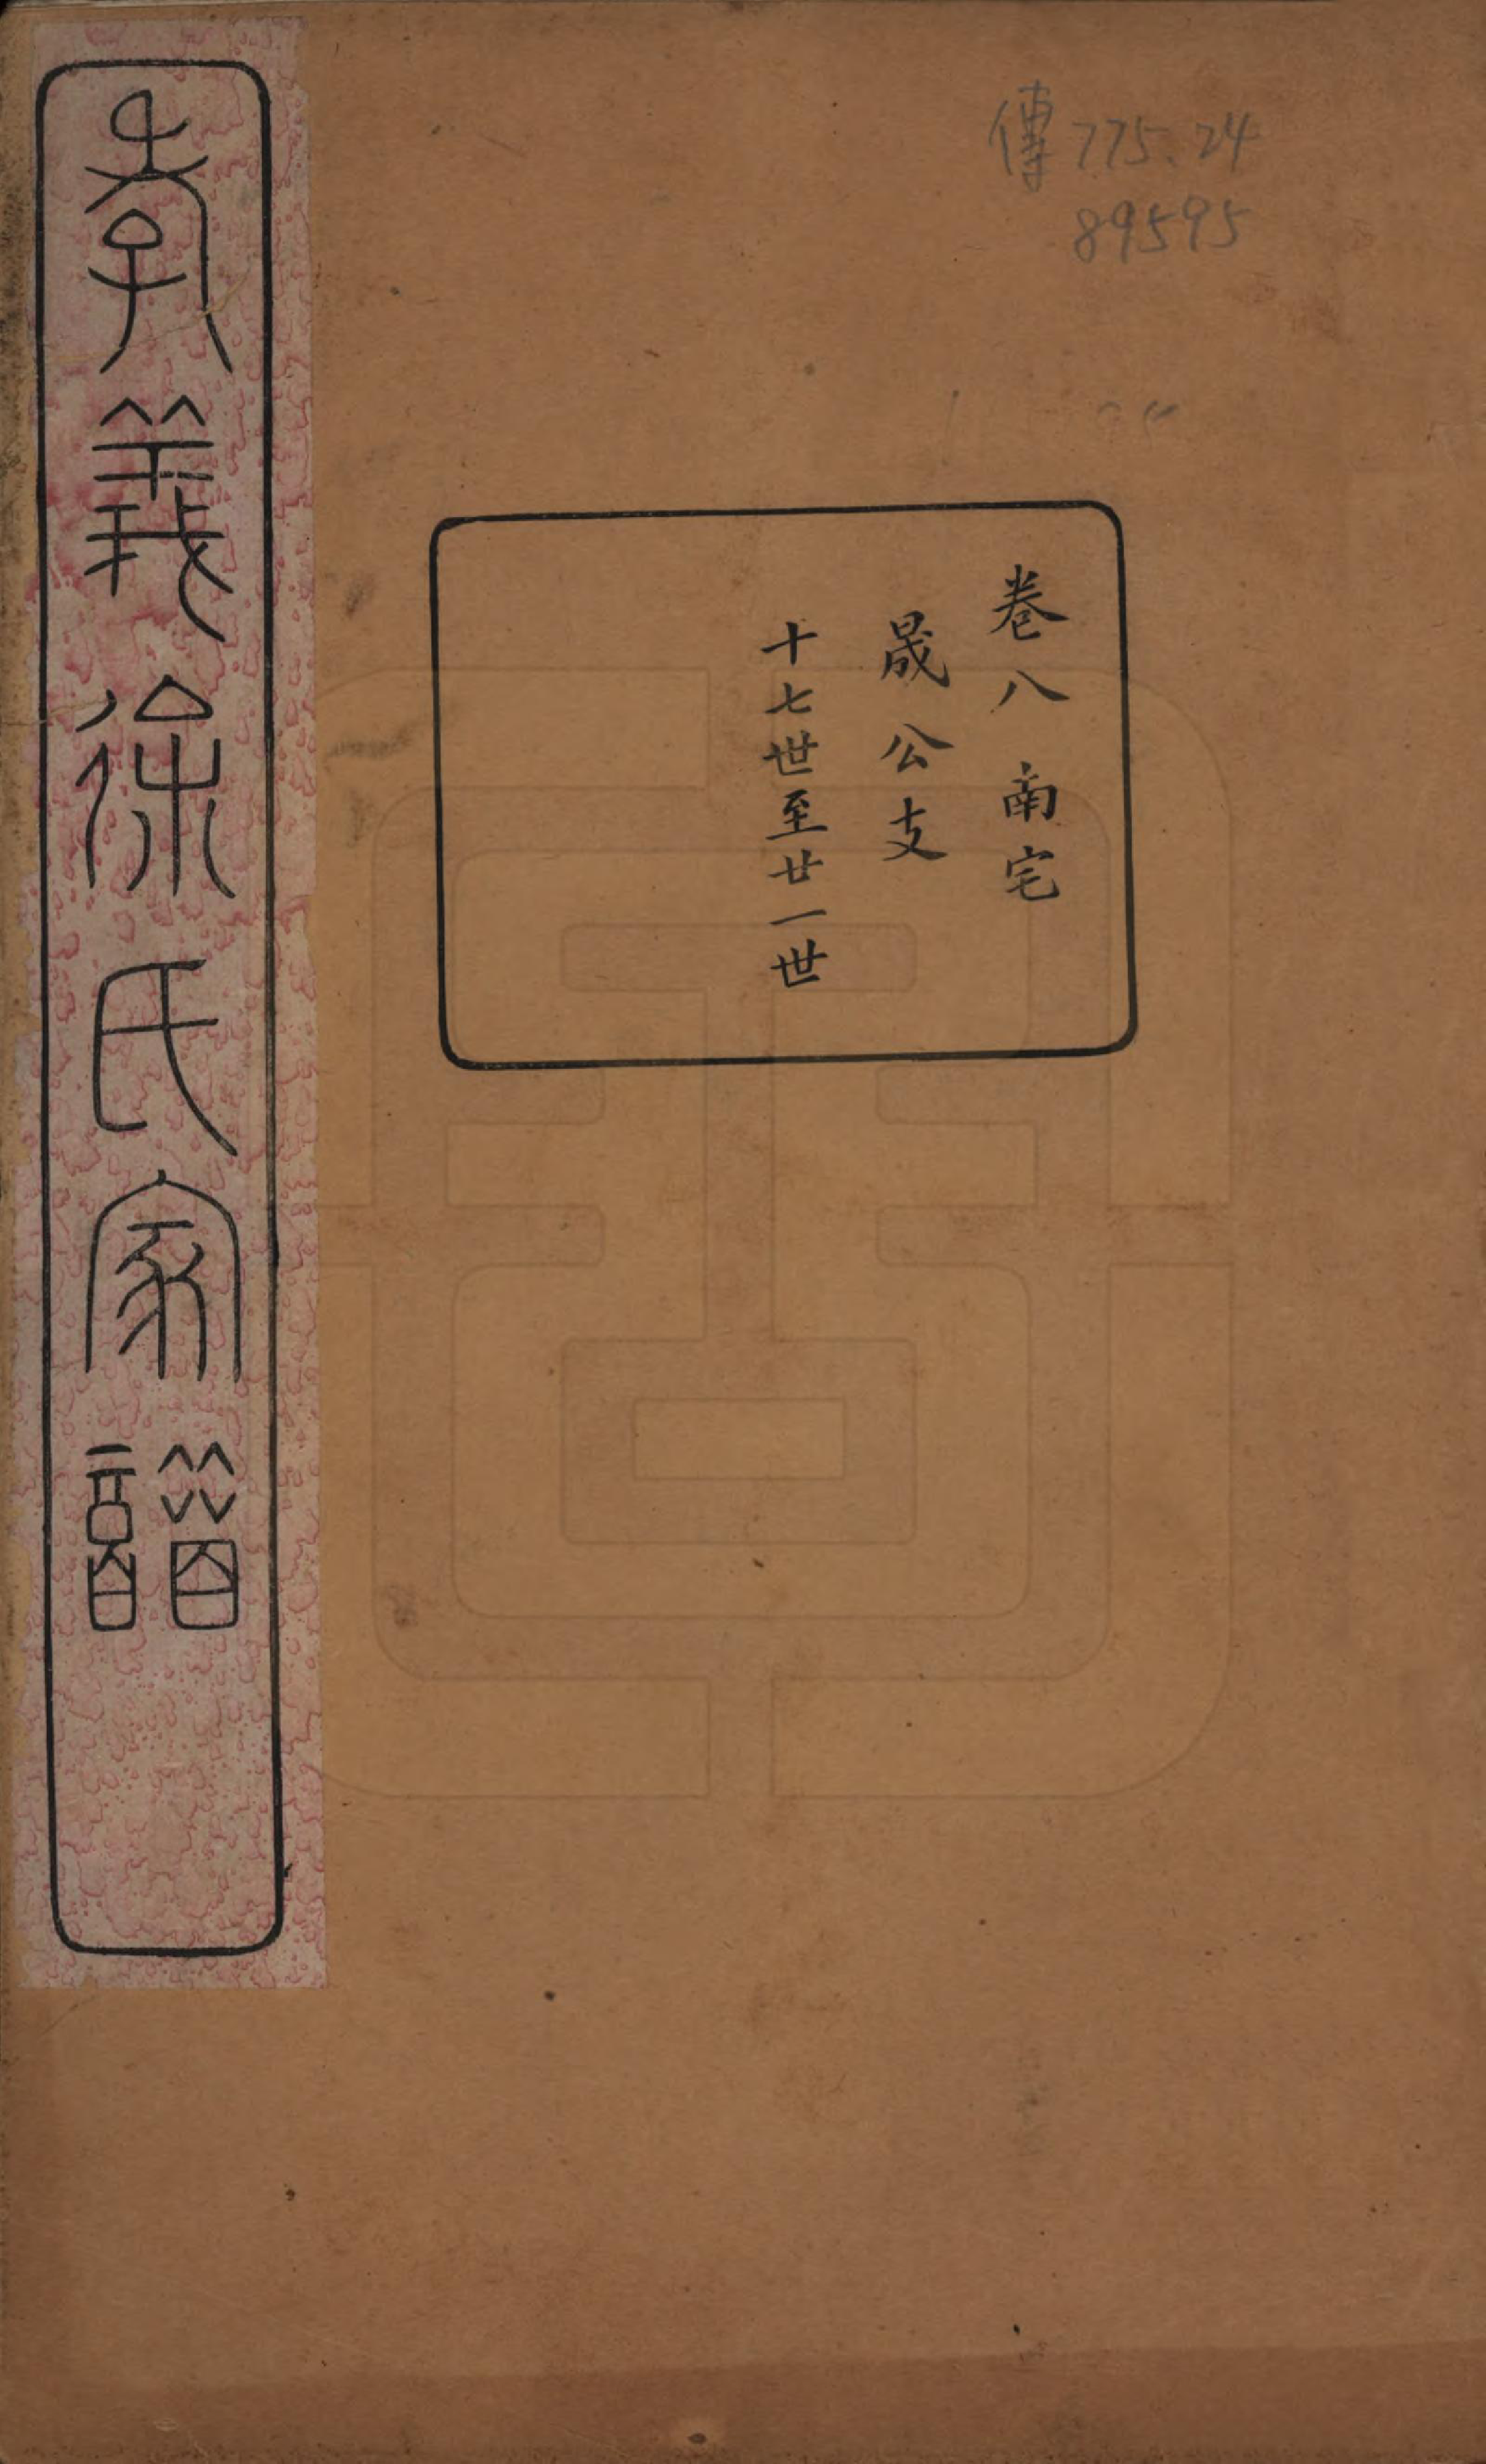 傳 775.24
89595
卷八 南宅
晟公支
十七世至廿一世
孝義徐氏家譜